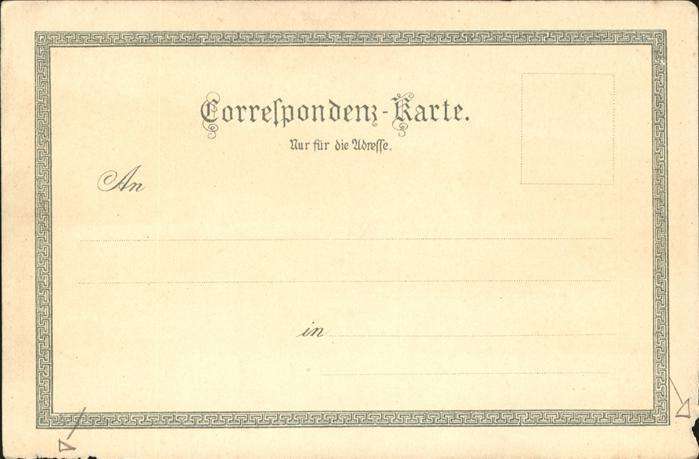 Correſpondenz-Karte.
Nur für die Adreſſe.
An
in